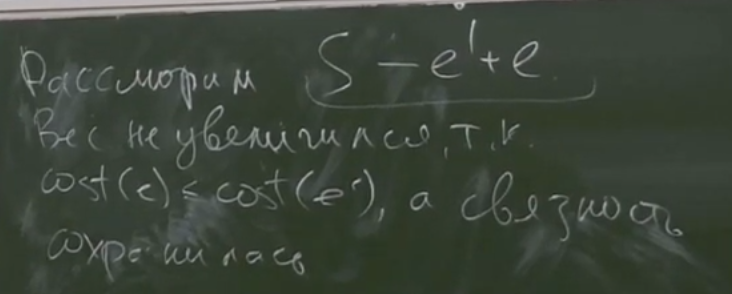 Рассморим S - e' + e
Вес не увеличился, т.к.
cost(e) ≤ cost(e'), а связность
сохранилась